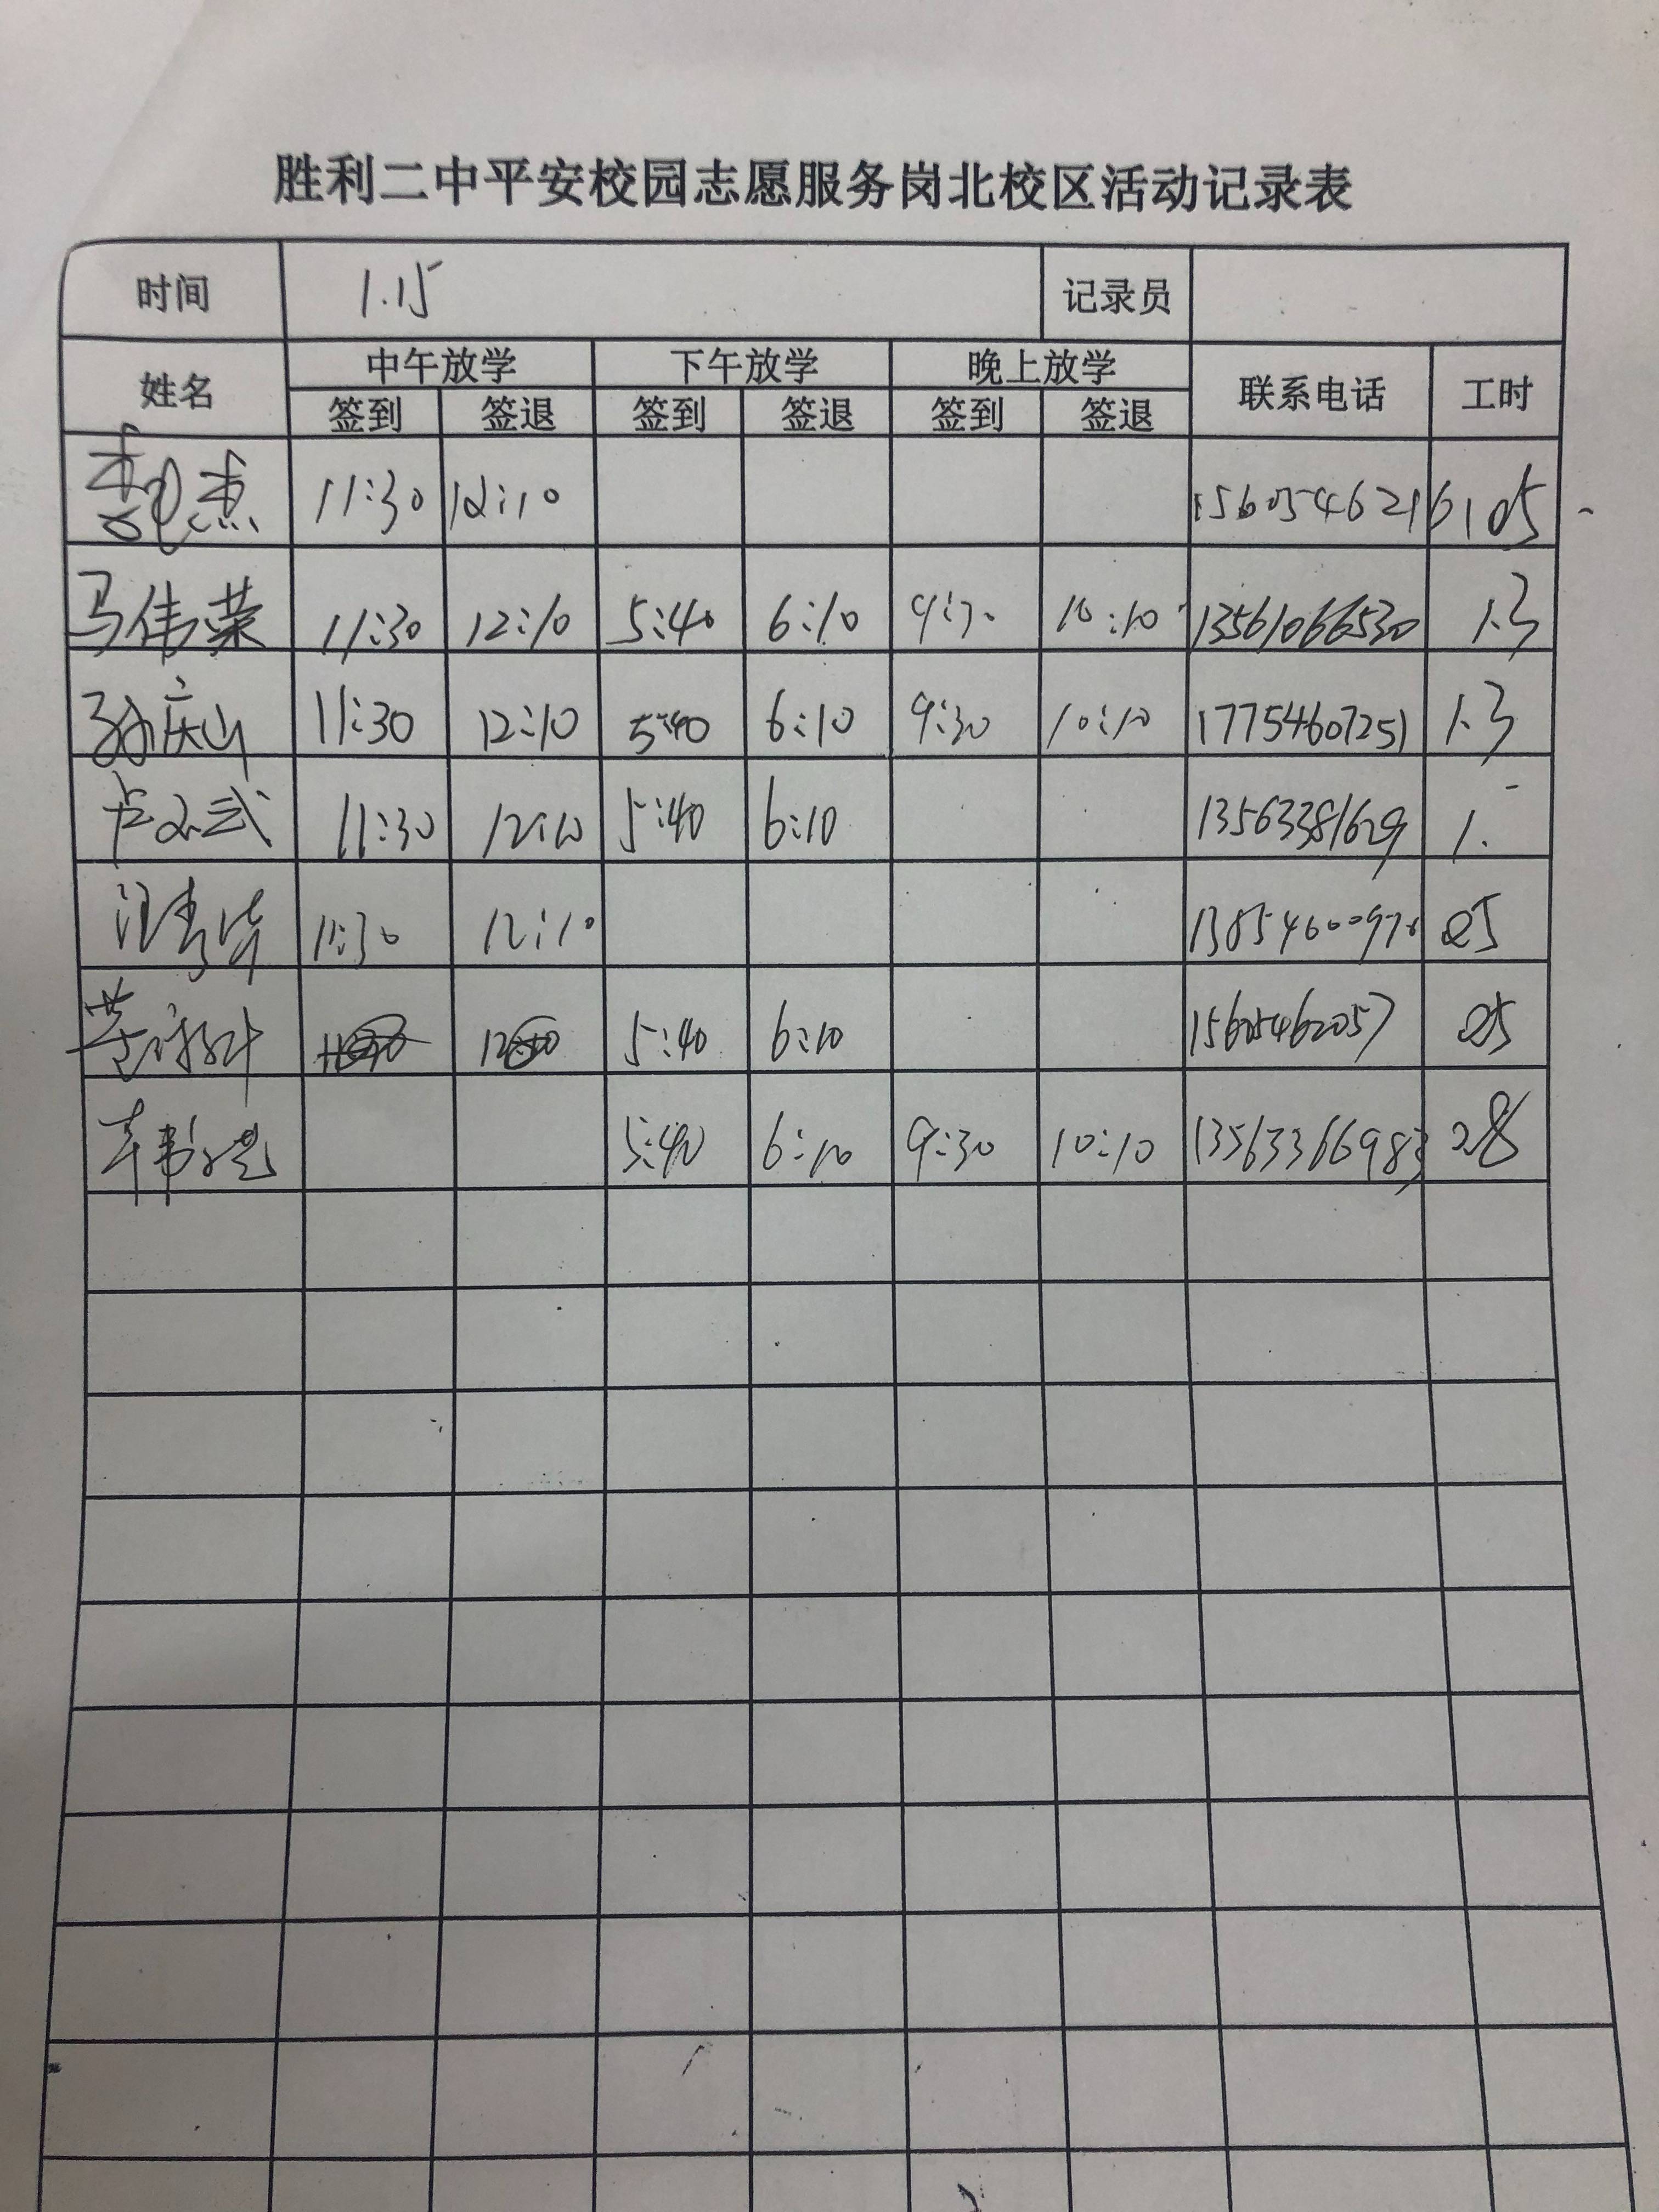 胜利二中平安校园志愿服务岗北校区活动记录表
时间 1.15 记录员
姓名 中午放学 下午放学 晚上放学 联系电话 工时
签到 签退 签到 签退 签到 签退
11:30 12:10 15605462161 05
马伟荣 11:30 12:10 5:40 6:10 9:30 10:10 13561066530 1.3
孙庆山 11:30 12:10 5:40 6:10 9:30 10:10 17754607251 1.3
11:30 12:10 5:40 6:10 13563381629 1.
11:30 12:10 05
5:40 6:10 15605462057 05
5:40 6:10 9:30 10:10 13563366983 0.8